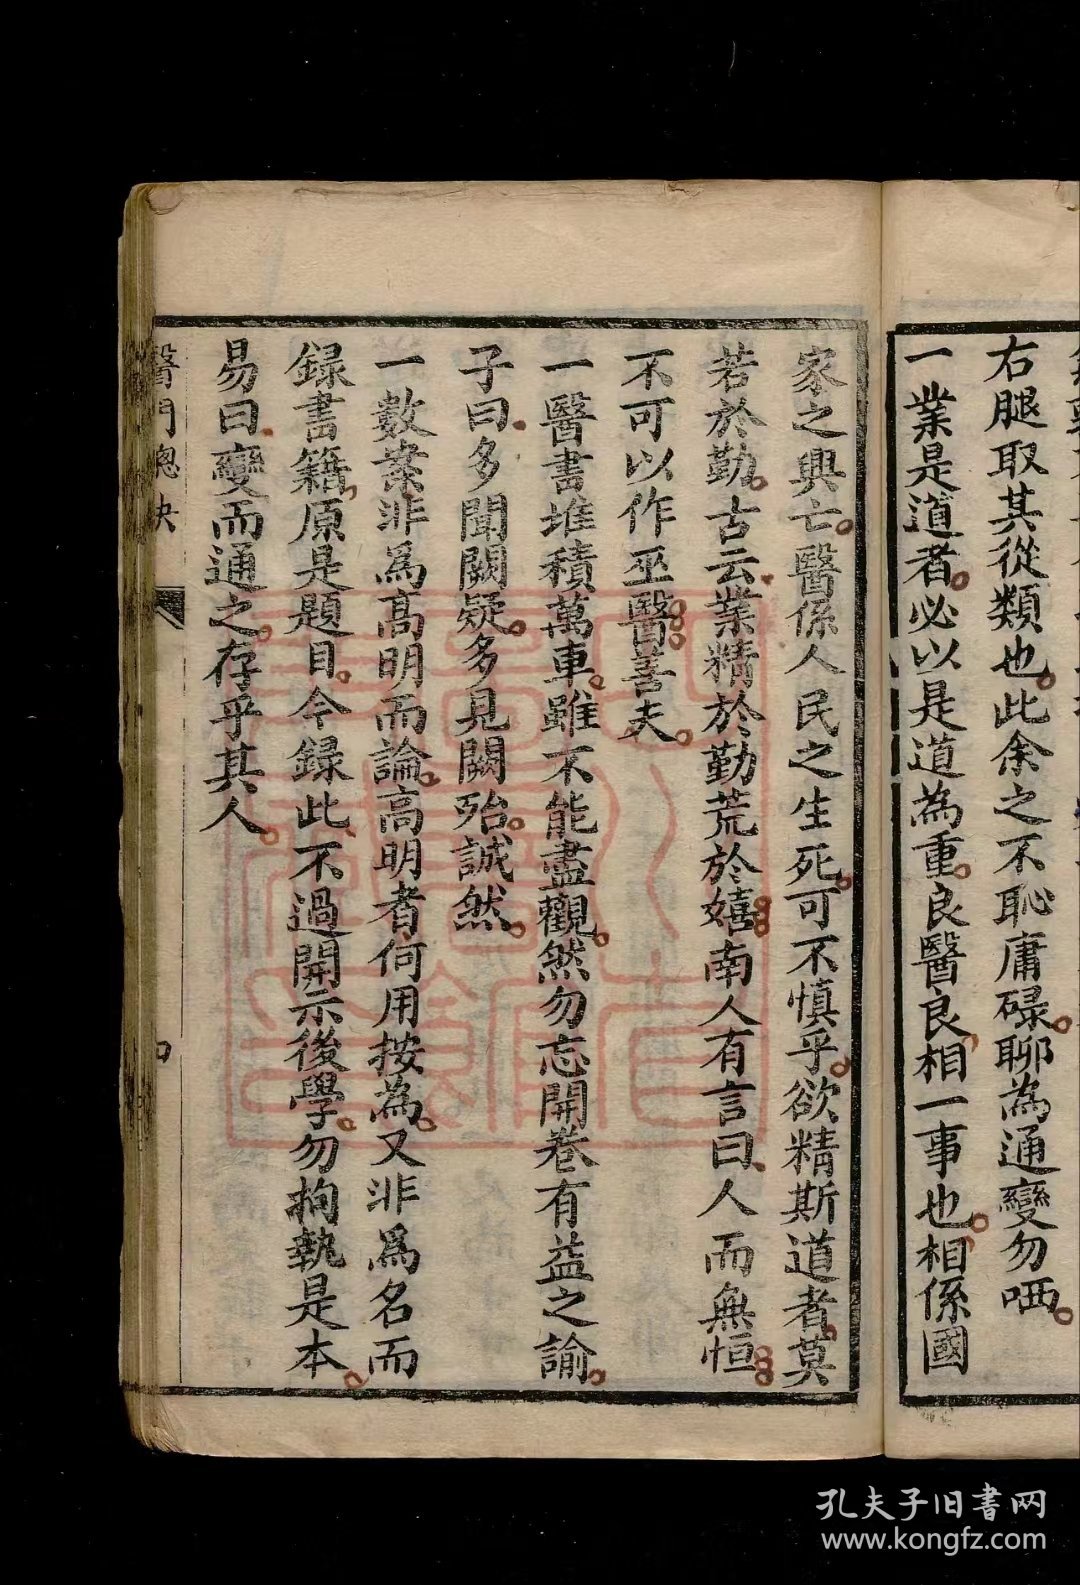 右腿取其從類也此余之不恥庸碌聊為通變勿哂
一業是道者必以是道為重良醫良相一事也相係國
家之興亡醫係人民之生死可不慎乎欲精斯道者莫
若於勤古云業精於勤荒於嬉南人有言曰人而無恒
不可以作巫醫善夫
一醫書堆積萬車雖不能盡觀然勿忘開卷有益之諭
子曰多聞闕疑多見闕殆誠然
一數案非爲高明而論高明者何用按為又非爲名而
録書籍原是題目今録此不過開示後學勿拘執是本
易曰變而通之存乎其人
醫門總訣
孔夫子旧书网
www.kongfz.com